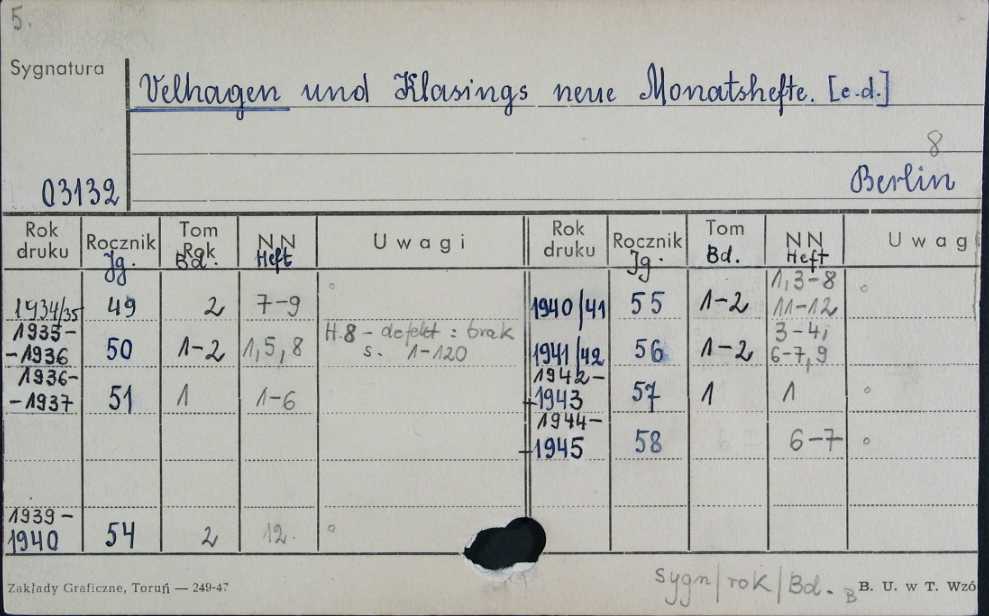 5.
Sygnatura
Velhagen und Klasings neue Monatshefte. [e.d.]
8
03132 Berlin
Rok druku Rocznik Jg. Tom Rok Bd. NN Heft Uwagi Rok druku Rocznik Jg. Tom Bd. NN Heft Uwagi
1934/35 49 2 7-9 °
1935-1936 50 1-2 1,5,8 H.8 - defekt: brak s. 1-120
1936-1937 51 1 1-6
1939-1940 54 2 12. °
1940/41 55 1-2 1,3-8 11-12 °
1941/42 56 1-2 3-4, 6-7,9
1942-1943 57 1 1 °
1944-1945 58 6-7 °
sygn/rok/Bd.
Zakłady Graficzne, Toruń — 249-47 B B. U. w T. Wzó